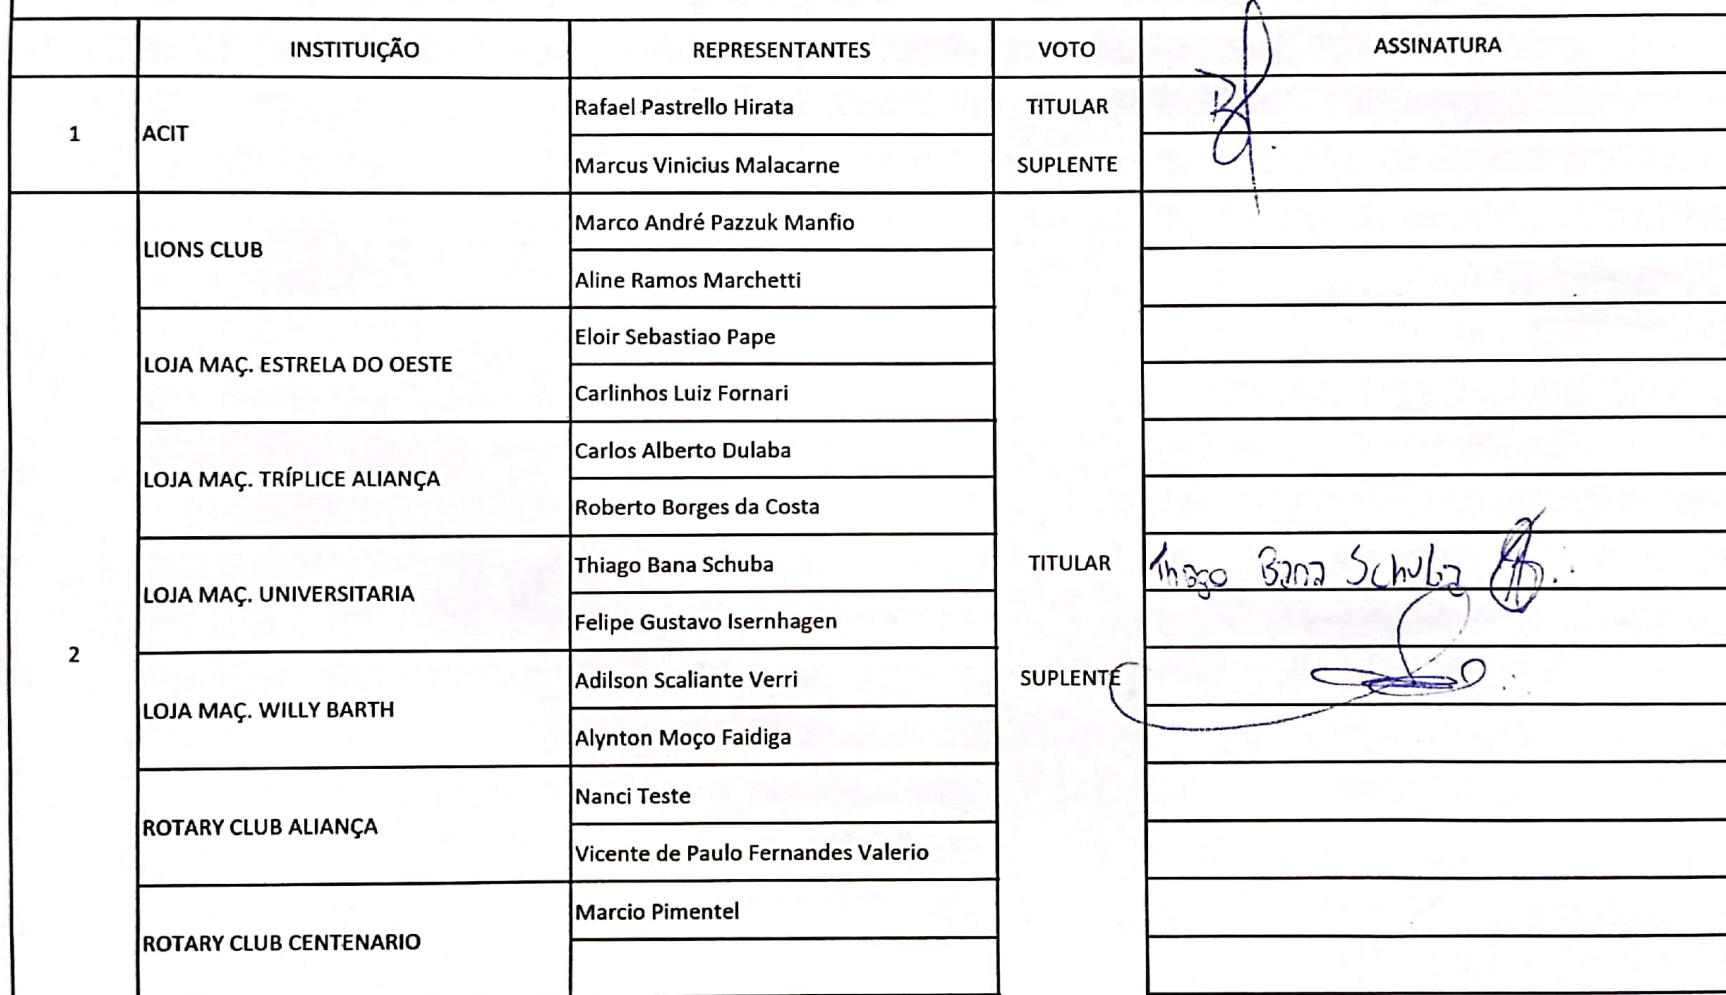 INSTITUIÇÃO REPRESENTANTES VOTO ASSINATURA
1 ACIT Rafael Pastrello Hirata TITULAR
Marcus Vinicius Malacarne SUPLENTE
LIONS CLUB Marco André Pazzuk Manfio
Aline Ramos Marchetti
LOJA MAÇ. ESTRELA DO OESTE Eloir Sebastiao Pape
Carlinhos Luiz Fornari
LOJA MAÇ. TRÍPLICE ALIANÇA Carlos Alberto Dulaba
Roberto Borges da Costa
LOJA MAÇ. UNIVERSITARIA Thiago Bana Schuba TITULAR Thiago Bana Schuba
Felipe Gustavo Isernhagen
2 LOJA MAÇ. WILLY BARTH Adilson Scaliante Verri SUPLENTE
Alynton Moço Faidiga
ROTARY CLUB ALIANÇA Nanci Teste
Vicente de Paulo Fernandes Valerio
ROTARY CLUB CENTENARIO Marcio Pimentel